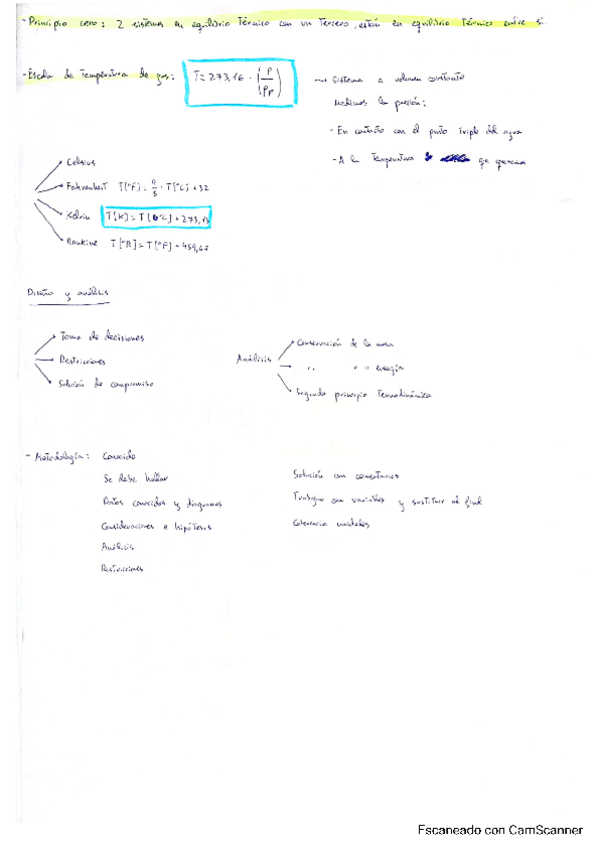 - Principio cero: 2 sistemas en equilibrio térmico con un tercero, están en equilibrio térmico entre si
- Escala de temperatura de gas: T = 273,16 · (P / PPT)
→ Sistema a volumen constante
medimos la presión:
- En contacto con el punto triple del agua
- A la temperatura que queramos
Celsius
Fahrenheit T[ºF] = 9/5 · T[ºC] + 32
Kelvin T[K] = T[ºC] + 273,15
Rankine T[ºR] = T[ºF] + 459,67
Diseño y análisis
Toma de decisiones
Restricciones
Solución de compromiso
Análisis
Conservación de la masa
" " " energía
Segundo principio Termodinámica
- Metodología: Conocido
Se debe hallar
Datos conocidos y diagramas
Consideraciones e hipótesis
Análisis
Restricciones
Solución con comentarios
Trabajar con variables y sustituir al final
Coherencia unidades
Escaneado con CamScanner